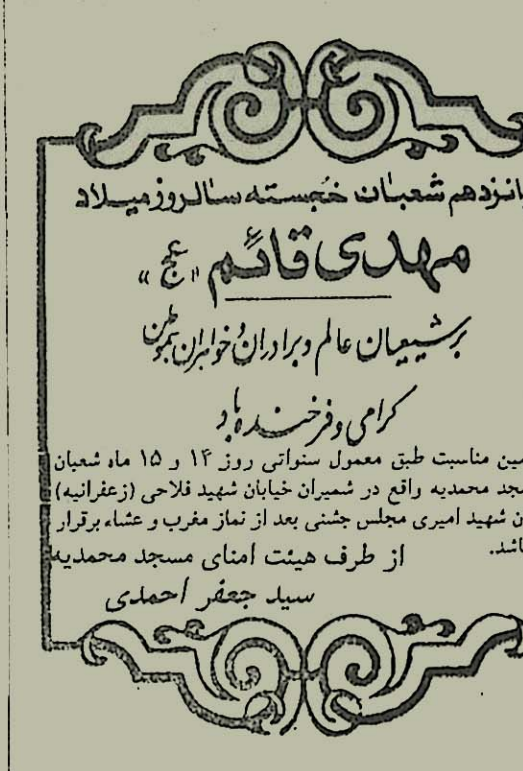 انزدهم شعبان خجسته سالروز میلاد
مهدی قائم «عج»
بر شیعیان عالم و برادران و خواهران هموطن
گرامی و فرخنده باد
مین مناسبت طبق معمول سنواتی روز ۱۴ و ۱۵ ماه شعبان
جد محمدیه واقع در شمیران خیابان شهید فلاحی (زعفرانیه)
ن شهید امیری مجلس جشنی بعد از نماز مغرب و عشاء برقرار
اشد.
از طرف هیئت امنای مسجد محمدیه
سید جعفر احمدی